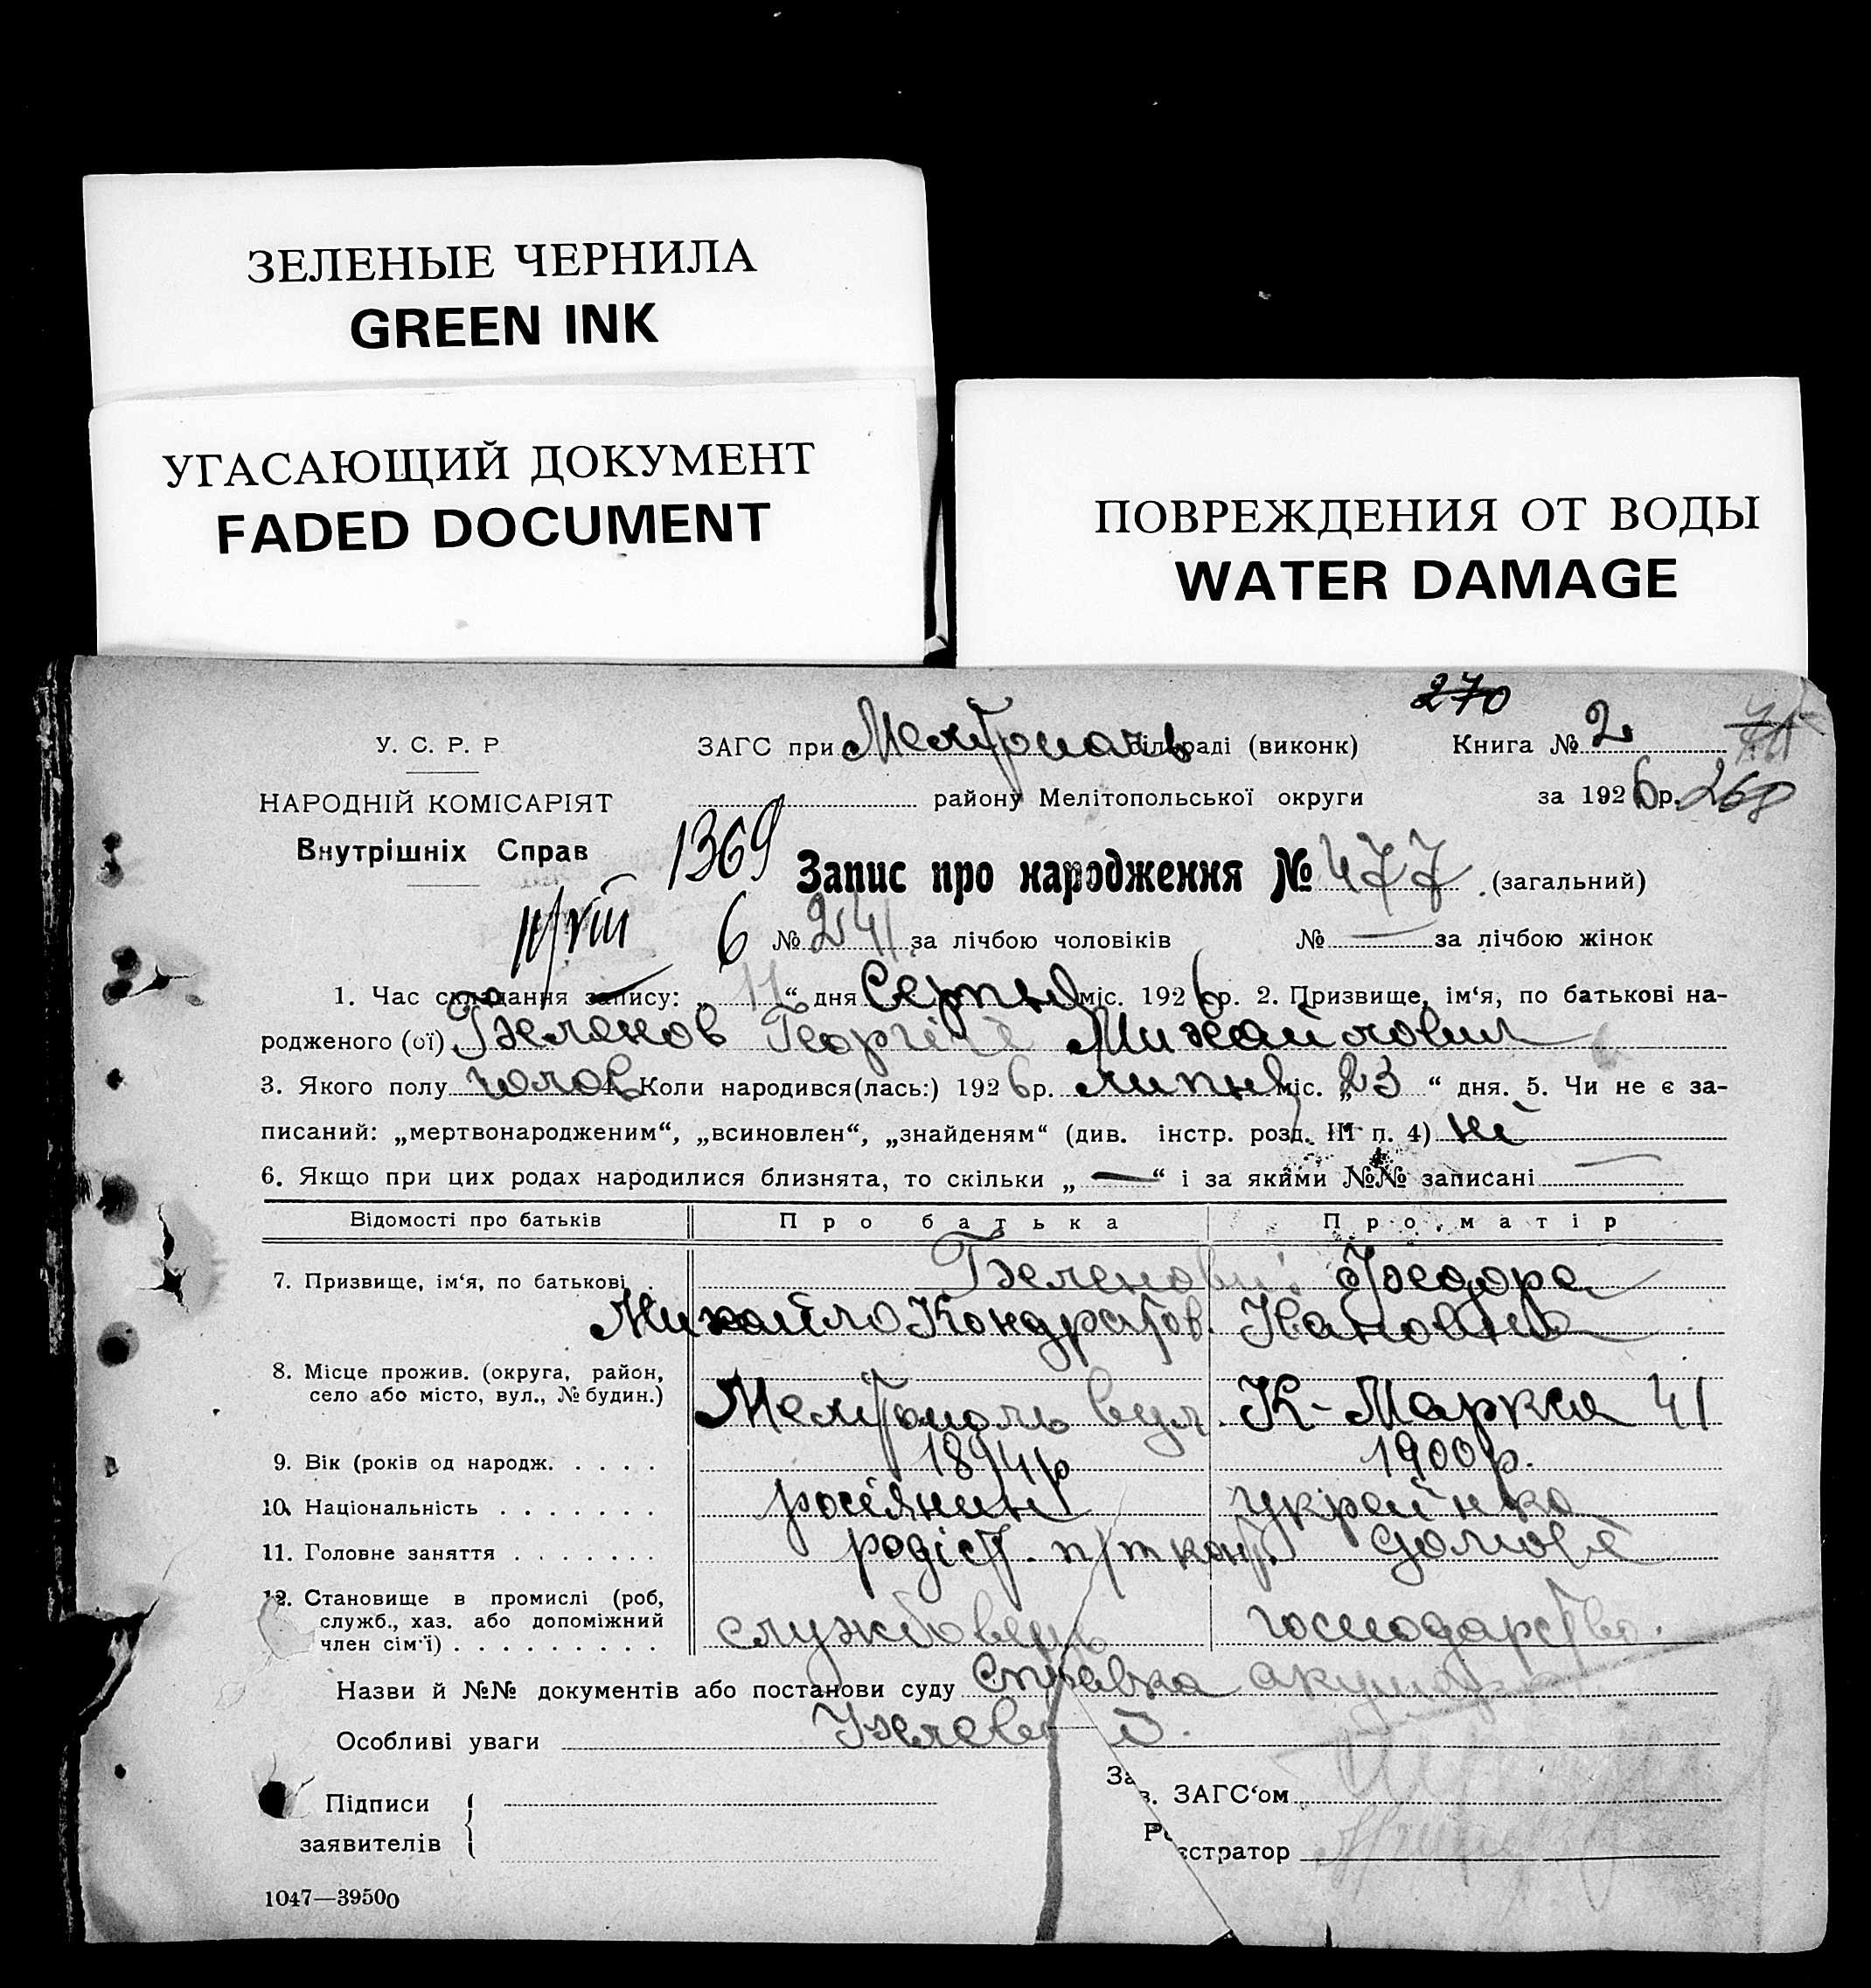 ЗЕЛЕНЫЕ ЧЕРНИЛА
GREEN INK
УГАСАЮЩИЙ ДОКУМЕНТ
FADED DOCUMENT
ПОВРЕЖДЕНИЯ ОТ ВОДЫ
WATER DAMAGE
270
У. С. Р. Р
ЗАГС при Мелітополь раді (виконк) Книга № 2
НАРОДНІЙ КОМІСАРІЯТ
району Мелітопольської округи за 1926 р. 268
Внутрішніх Справ
1369
Запис про народження № 477 (загальний)
11/VIII 6 № 241 за лічбою чоловіків № — за лічбою жінок
1. Час складання запису: „ 11 “ дня Серпня міс. 1926 р. 2. Призвище, ім‘я, по батькові на-
родженого (ої) Беленов Георгій Михайлович
3. Якого полу чолов 4. Коли народився(лась:) 1926 р. липня міс. „ 23 “ дня. 5. Чи не є за-
писаний: „мертвонародженим“, „всиновлен“, „знайденям“ (див. інстр. розд. III п. 4) ні
6. Якщо при цих родах народилися близнята, то скільки „ — “ і за якими №№ записані —
Відомості про батьків Про батька Про матір
7. Призвище, ім‘я, по батькові Беленови Федора
Михайло Кондратов. Івановна
8. Місце прожив. (округа, район,
село або місто, вул., № будин.)
Мелітополь вул. К-Маркса 41
9. Вік (років од народж. . . . . 1894 р 1900 р.
10. Національність . . . . . . . росіянин українка
11. Головне заняття . . . . . . . п/т конт. домове
12. Становище в промислі (роб,
служб., хаз. або допоміжний
член сім‘ї) . . . . . . . . . службовець господарство.
Назви й №№ документів або постанови суду Справка акушерки
Особливі уваги
Підписи
заявителів
Зав. ЗАГС‘ом
Реєстратор
1047—39500